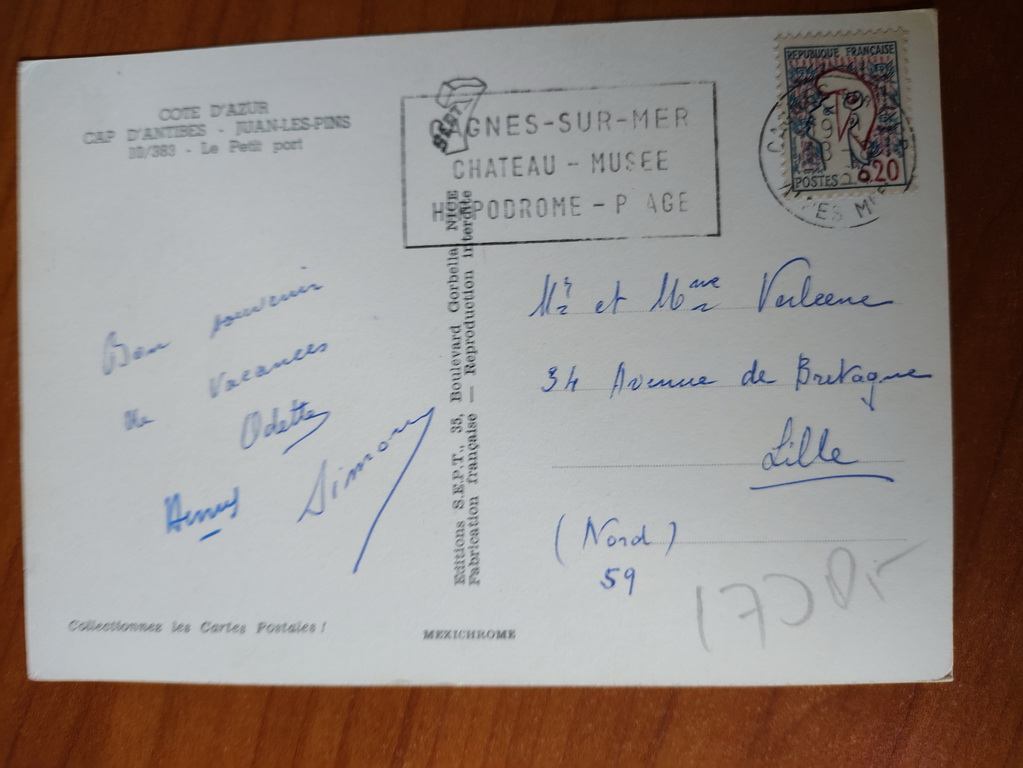 COTE D'AZUR
CAP D'ANTIBES - JUAN-LES-PINS
10/383 - Le Petit port
CAGNES-SUR-MER
CHATEAU - MUSEE
HIPPODROME - PLAGE
REPUBLIQUE FRANÇAISE
POSTES 0,20
Bon souvenir
de Vacances
Odette
Simony
Editions S.E.P.T., 35, Boulevard Gorbella, NICE
Fabrication française — Reproduction interdite
Mr et Mme Verleene
34 Avenue de Bretagne
Lille
(Nord)
59
Collectionnez les Cartes Postales !
MEXICHROME